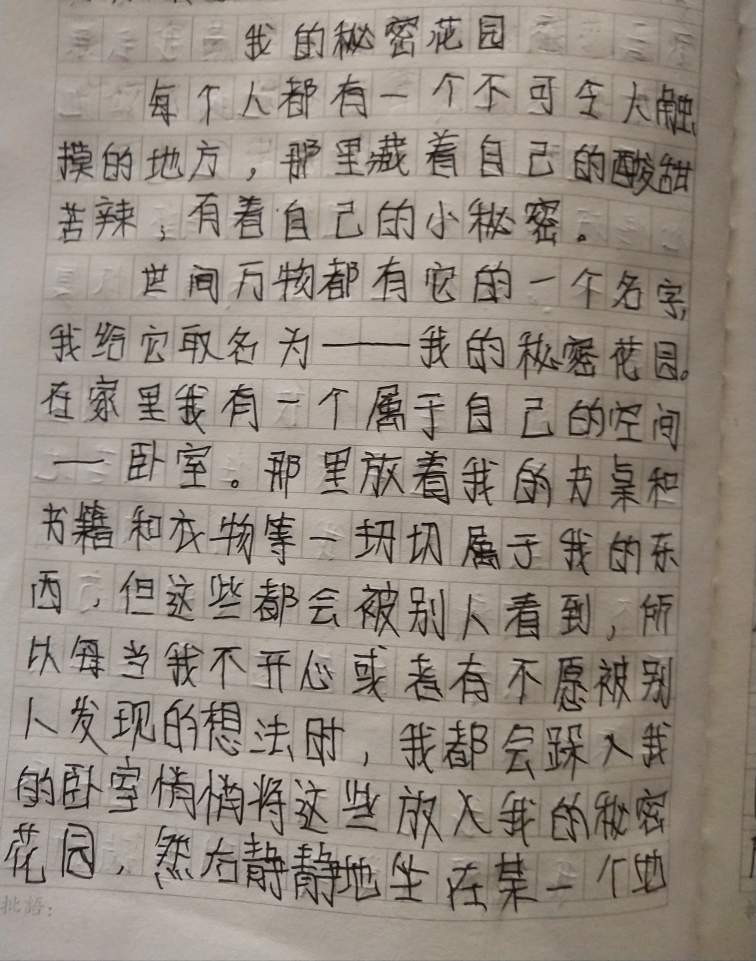 我的秘密花园
每个人都有一个不可全大触
摸的地方，那里藏着自己的酸甜
苦辣，有着自己的小秘密。
世间万物都有它的一个名字,
我给它取名为——我的秘密花园。
在家里我有一个属于自己的空间
—卧室。那里放着我的书桌和
书籍和衣物等一切切属于我的东
西，但这些都会被别人看到，所
以每当我不开心或者有不愿被别
人发现的想法时，我都会踩入我
的卧室悄悄将这些放入我的秘密
花园，然右静静地坐在某一个地
批語：